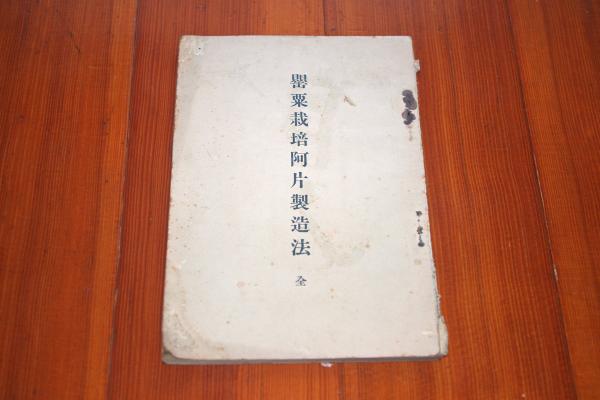 罌粟栽培阿片製造法 全